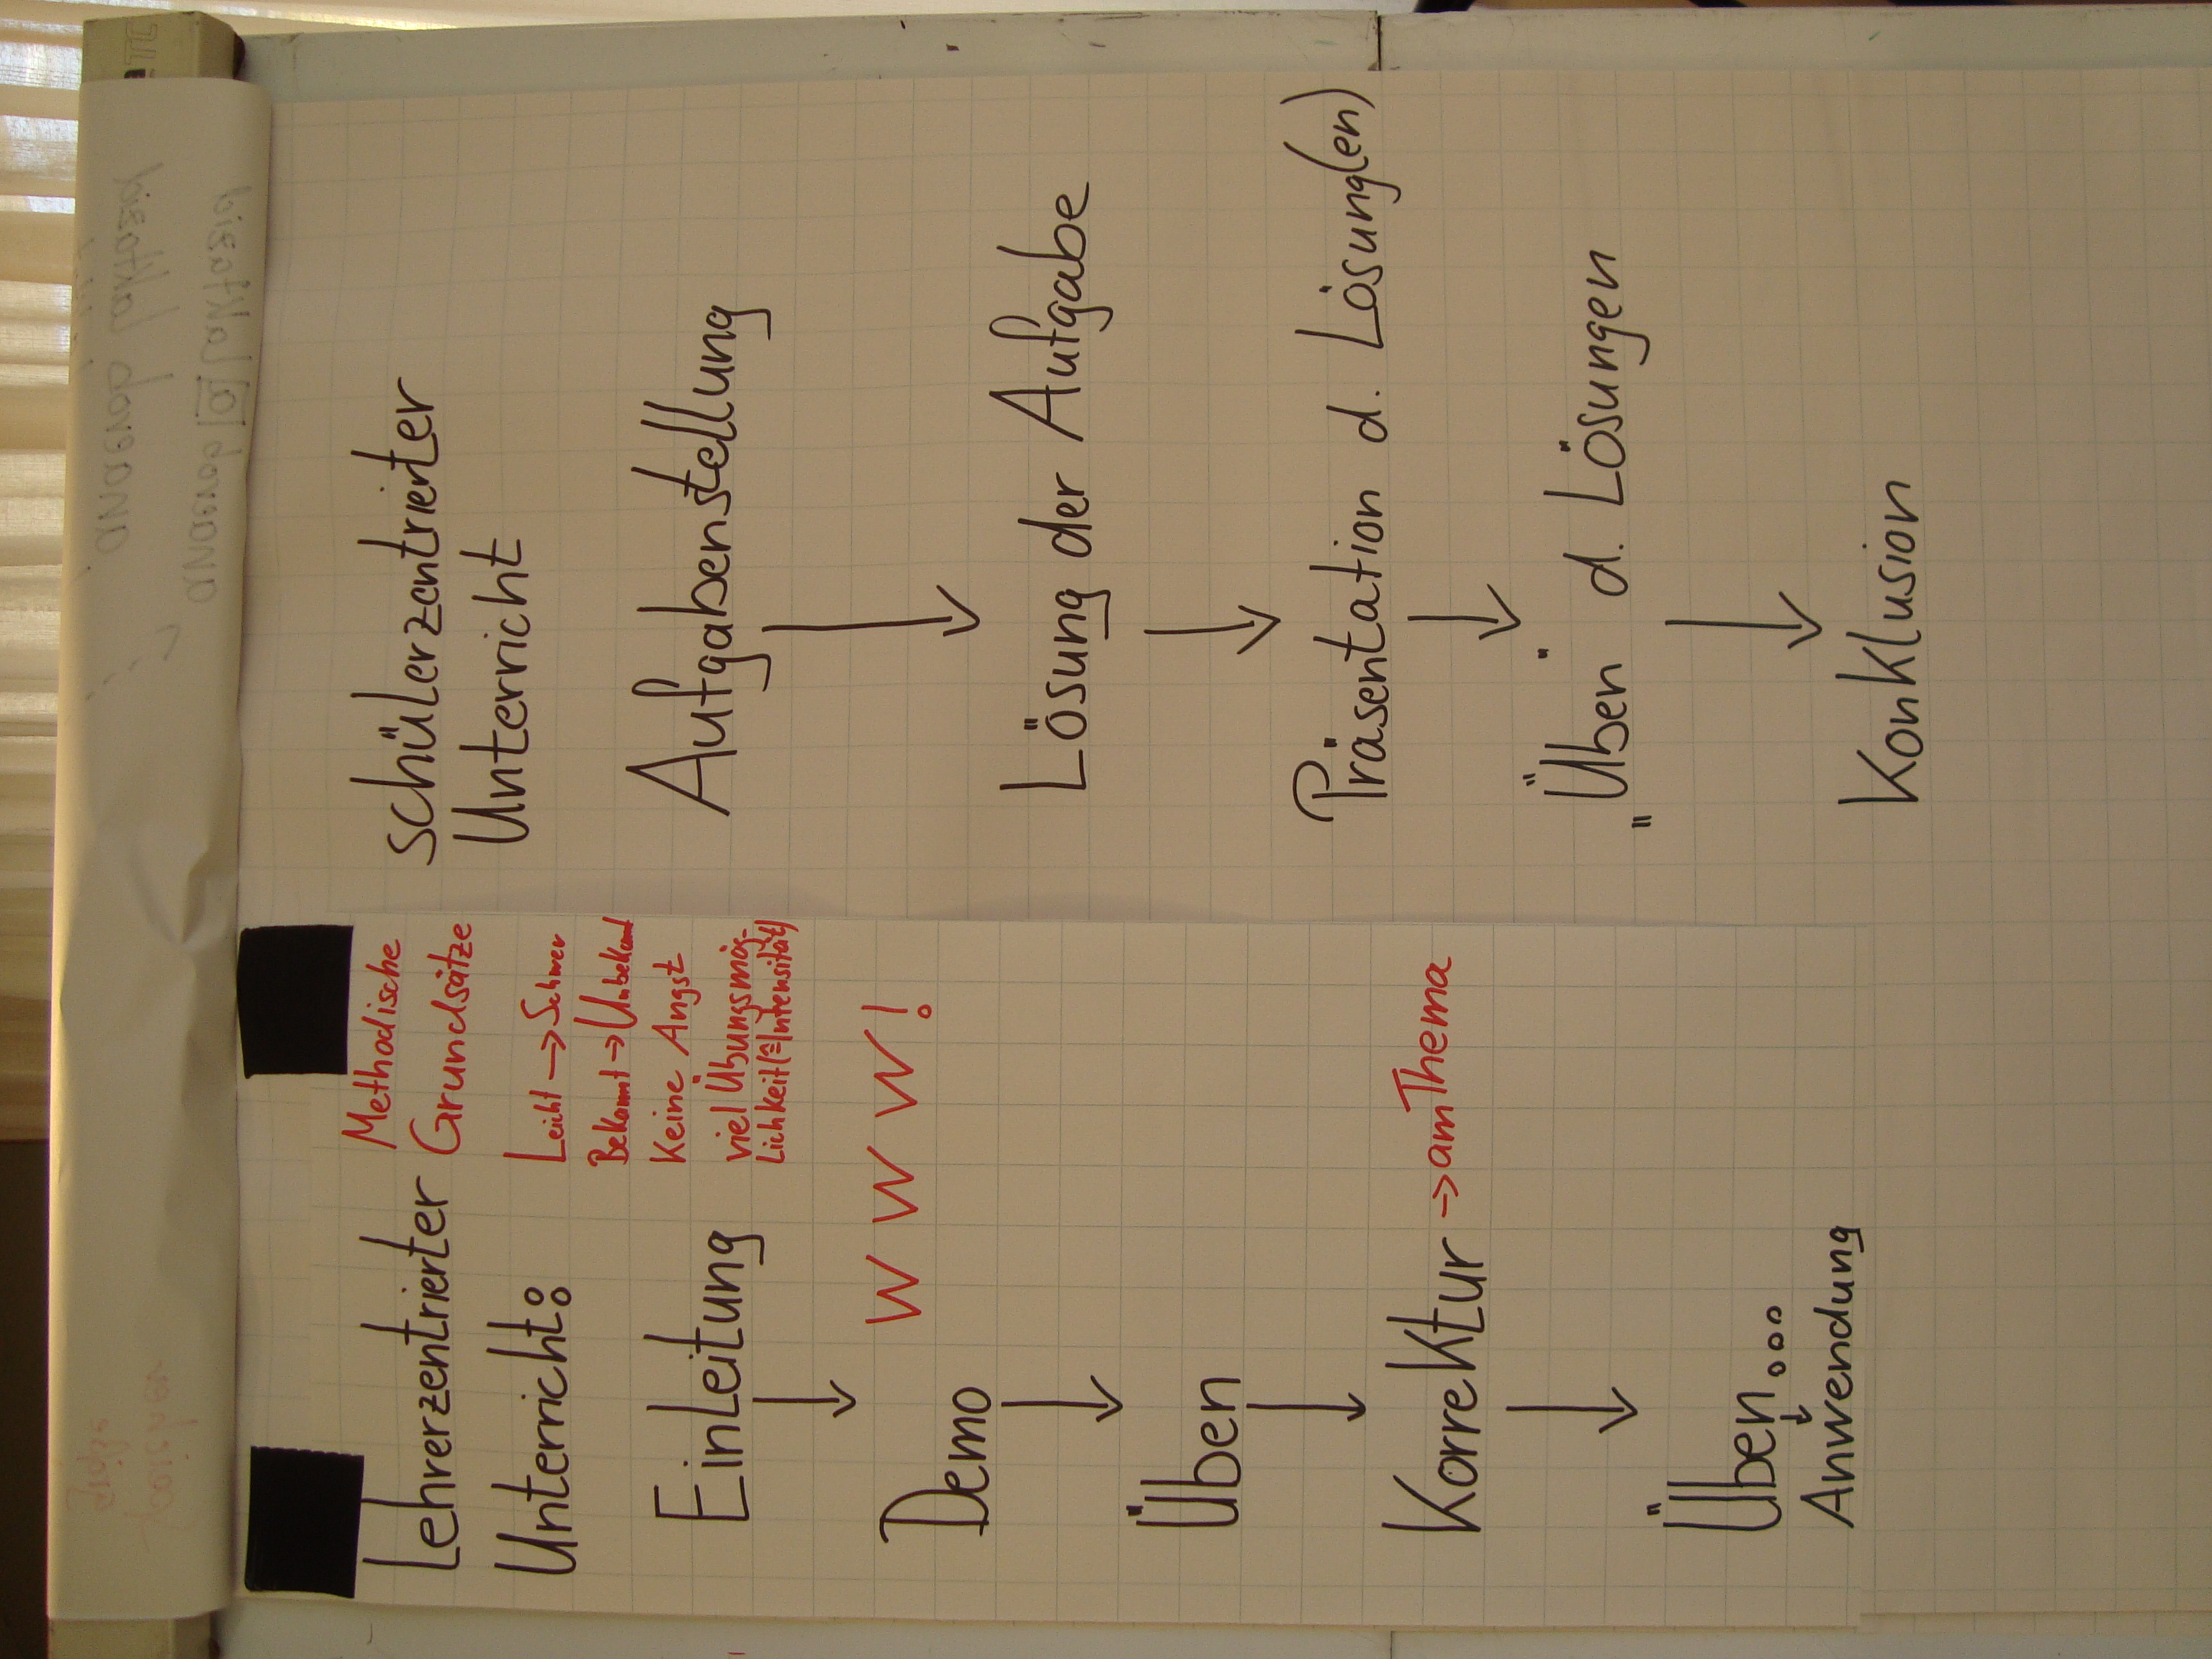 Lehrerzentrierter
Unterricht:
Methodische
Grundsätze
Leicht → Schwer
Bekannt → Unbekannt
Keine Angst
viel Übungsmög-
lichkeit (≙ Intensität)
Einleitung
↓
W W W W!
Demo
↓
Üben
↓
Korrektur → am Thema
↓
Üben....
↓
Anwendung
Schülerzentrierter
Unterricht
Aufgabenstellung
↓
Lösung der Aufgabe
↓
Präsentation d. Lösung(en)
↓
„Üben" d. Lösungen
↓
Konklusion